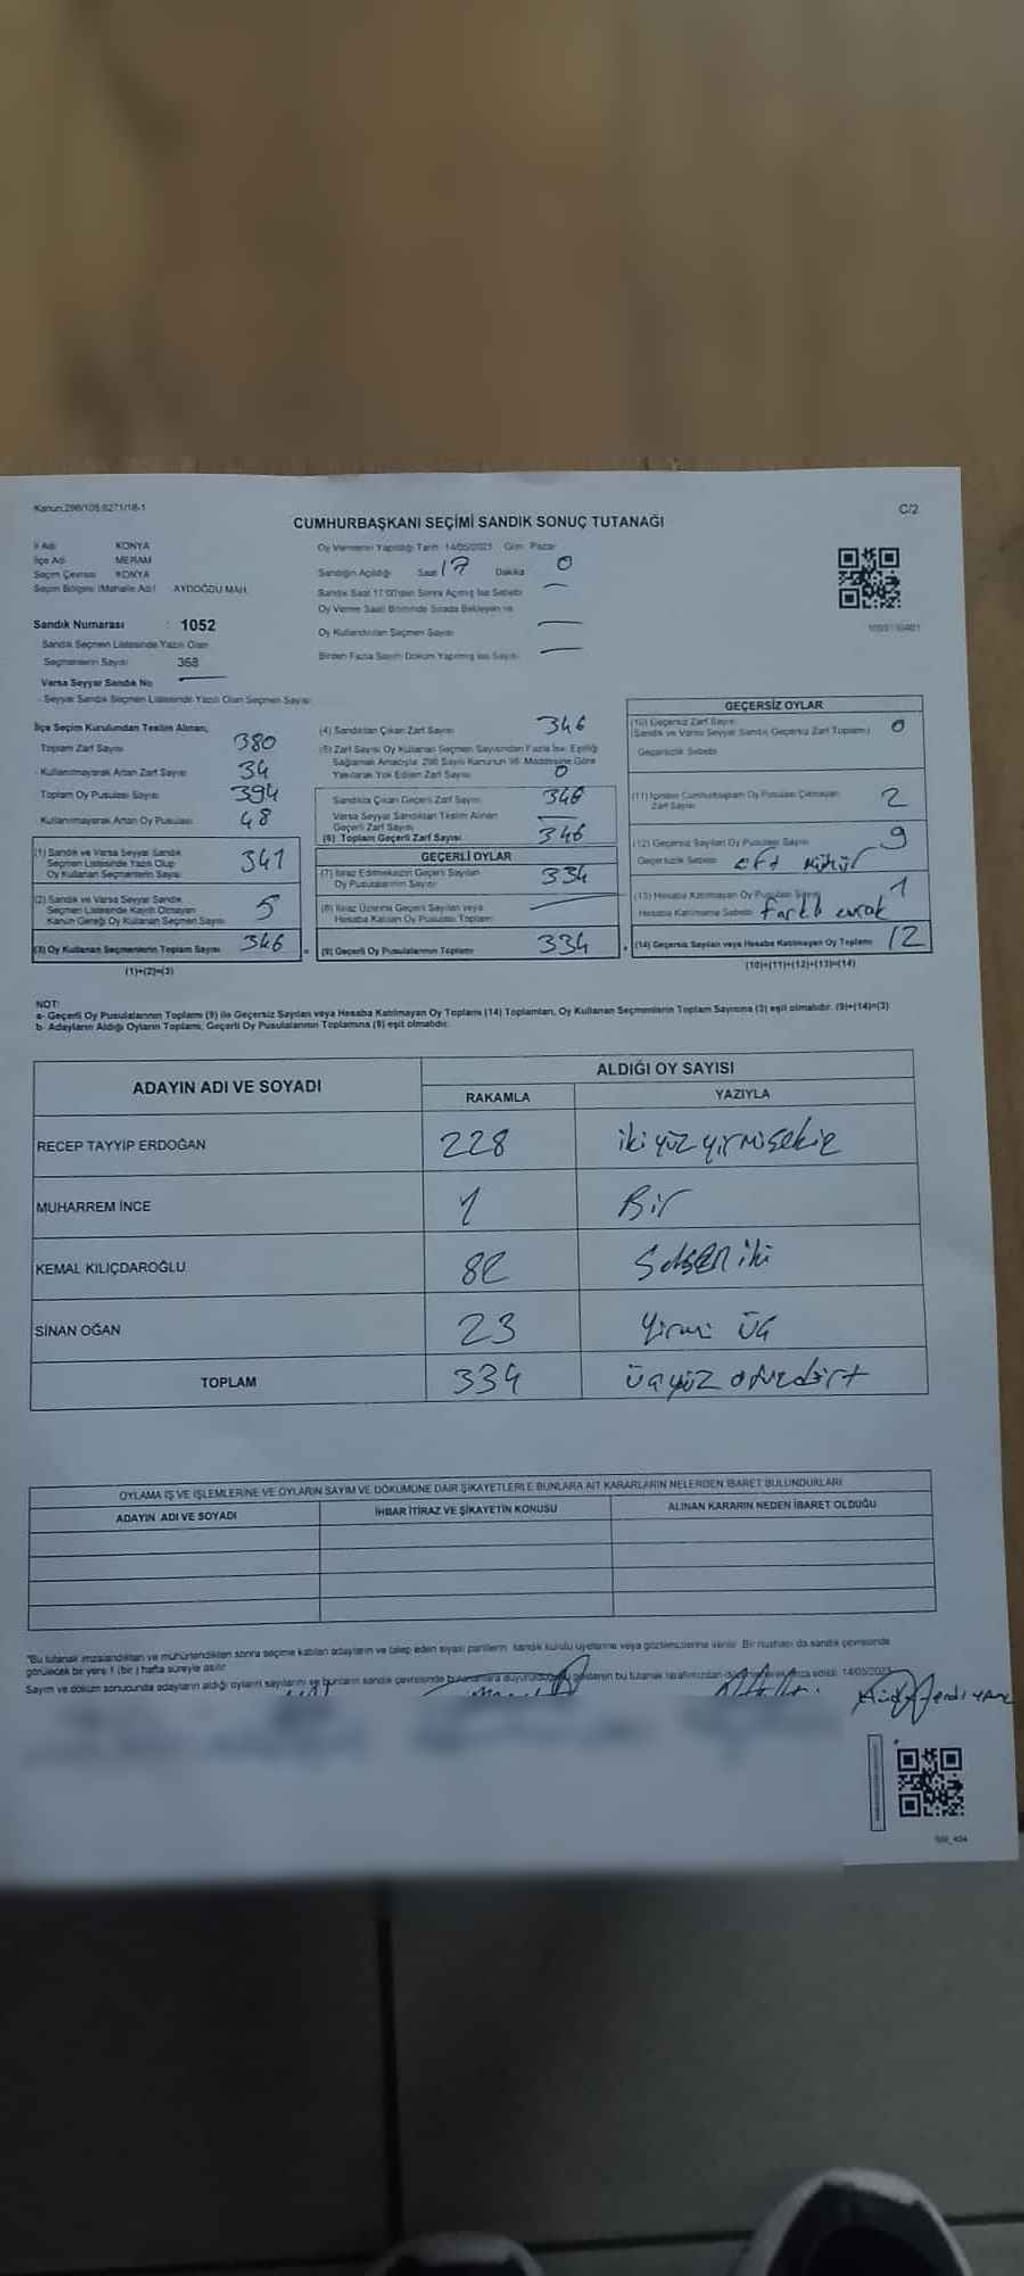 Kanun:298/105,6271/18-1
C/2
CUMHURBAŞKANI SEÇİMİ SANDIK SONUÇ TUTANAĞI
İl Adı KONYA
İlçe Adı MERAM
Seçim Çevresi KONYA
Seçim Bölgesi (Mahalle Adı) AYDOĞDU MAH.
Sandık Numarası : 1052
Sandık Seçmen Listesinde Yazılı Olan
Seçmenlerin Sayısı 368
Varsa Seyyar Sandık No
Seyyar Sandık Seçmen Listesinde Yazılı Olan Seçmen Sayısı
Oy Vermenin Yapıldığı Tarih 14/05/2023 Gün Pazar
Sandığın Açıldığı Saat 17 Dakika 0
Sandık Saat 17:00'den Sonra Açılmış İse Sebebi
Oy Verme Saati Bitiminde Sırada Bekleyen ve
Oy Kullandırılan Seçmen Sayısı
Birden Fazla Sayım Döküm Yapılmış İse Sayısı
İlçe Seçim Kurulundan Teslim Alınan;
Toplam Zarf Sayısı 380
Kullanılmayarak Artan Zarf Sayısı 34
Toplam Oy Pusulası Sayısı 394
Kullanılmayarak Artan Oy Pusulası 48
(1) Sandık ve Varsa Seyyar Sandık
Seçmen Listesinde Yazılı Olup
Oy Kullanan Seçmenlerin Sayısı 341
(2) Sandık ve Varsa Seyyar Sandık
Seçmen Listesinde Kayıtlı Olmayan
Kanun Gereği Oy Kullanan Seçmen Sayısı 5
(3) Oy Kullanan Seçmenlerin Toplam Sayısı 346
(1)+(2)=(3)
(4) Sandıktan Çıkan Zarf Sayısı 346
(5) Zarf Sayısı Oy Kullanan Seçmen Sayısından Fazla İse, Eşitliği
Sağlamak Amacıyla 298 Sayılı Kanunun 98. Maddesine Göre
Yakılarak Yok Edilen Zarf Sayısı 0
Sandıkta Çıkan Geçerli Zarf Sayısı 346
Varsa Seyyar Sandıktan Teslim Alınan
Geçerli Zarf Sayısı
(6) Toplam Geçerli Zarf Sayısı 346
GEÇERLİ OYLAR
(7) İtiraz Edilmeksizin Geçerli Sayılan
Oy Pusulalarının Sayısı 334
(8) İtiraz Üzerine Geçerli Sayılan veya
Hesaba Katılan Oy Pusulası Toplamı
(9) Geçerli Oy Pusulalarının Toplamı 334
GEÇERSİZ OYLAR
(10) Geçersiz Zarf Sayısı
(Sandık ve Varsa Seyyar Sandık Geçersiz Zarf Toplamı) 0
Geçersizlik Sebebi
(11) İçinden Cumhurbaşkanı Oy Pusulası Çıkmayan
Zarf Sayısı 2
(12) Geçersiz Sayılan Oy Pusulası Sayısı 9
Geçersizlik Sebebi çift mühür
(13) Hesaba Katılmayan Oy Pusulası Sayısı 1
Hesaba Katılmama Sebebi farklı evrak
(14) Geçersiz Sayılan veya Hesaba Katılmayan Oy Toplamı 12
(10)+(11)+(12)+(13)=(14)
NOT:
a- Geçerli Oy Pusulalarının Toplamı (9) ile Geçersiz Sayılan veya Hesaba Katılmayan Oy Toplamı (14) Toplamları, Oy Kullanan Seçmenlerin Toplam Sayısına (3) eşit olmalıdır. (9)+(14)=(3)
b- Adayların Aldığı Oyların Toplamı, Geçerli Oy Pusulalarının Toplamına (9) eşit olmalıdır.
ADAYIN ADI VE SOYADI ALDIĞI OY SAYISI
RAKAMLA YAZIYLA
RECEP TAYYİP ERDOĞAN 228 iki yüz yirmi sekiz
MUHARREM İNCE 1 Bir
KEMAL KILIÇDAROĞLU 82 Seksen iki
SİNAN OĞAN 23 Yirmi üç
TOPLAM 334 üçyüz otuzdört
OYLAMA İŞ VE İŞLEMLERİNE VE OYLARIN SAYIM VE DÖKÜMÜNE DAİR ŞİKAYETLERLE BUNLARA AİT KARARLARIN NELERDEN İBARET BULUNDUKLARI
ADAYIN ADI VE SOYADI İHBAR İTİRAZ VE ŞİKAYETİN KONUSU ALINAN KARARIN NEDEN İBARET OLDUĞU
"Bu tutanak imzalandıktan ve mühürlendikten sonra seçime katılan adayların ve talep eden siyasi partilerin, sandık kurulu üyelerine veya gözlemcilerine verilir. Bir nüshası da sandık çevresinde
görülecek bir yere 1 (bir) hafta süreyle asılır.
Sayım ve döküm sonucunda adayların aldığı oyların sayılarını ve bunların sandık çevresinde bulunanlara duyurulduğunu bu tutanak tarafımızdan imza edildi. 14/05/2023